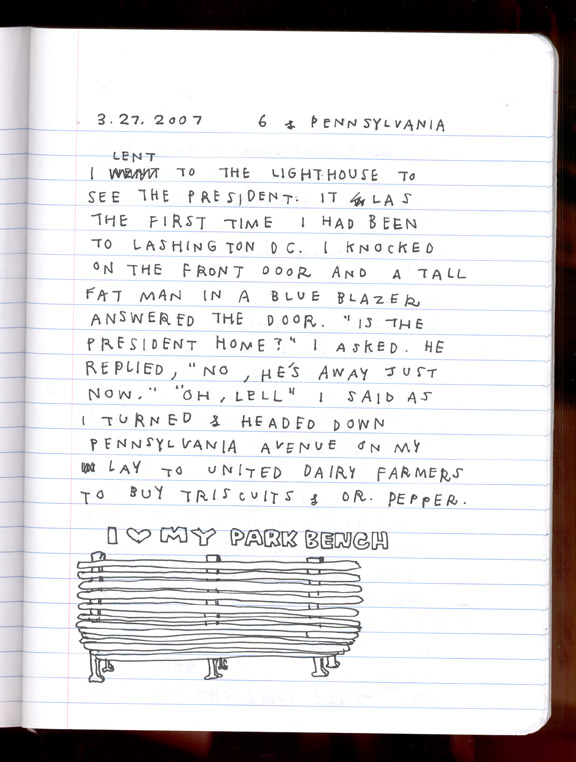 3.27.2007 6 & PENNSYLVANIA
LENT
I TO THE LIGHTHOUSE TO
SEE THE PRESIDENT. IT LAS
THE FIRST TIME I HAD BEEN
TO LASHINGTON DC. I KNOCKED
ON THE FRONT DOOR AND A TALL
FAT MAN IN A BLUE BLAZER
ANSWERED THE DOOR. "IS THE
PRESIDENT HOME?" I ASKED. HE
REPLIED, "NO, HE'S AWAY JUST
NOW." "OH, LELL" I SAID AS
I TURNED & HEADED DOWN
PENNSYLVANIA AVENUE ON MY
LAY TO UNITED DAIRY FARMERS
TO BUY TRISCUITS & DR. PEPPER.
I ♡ MY PARK BENCH